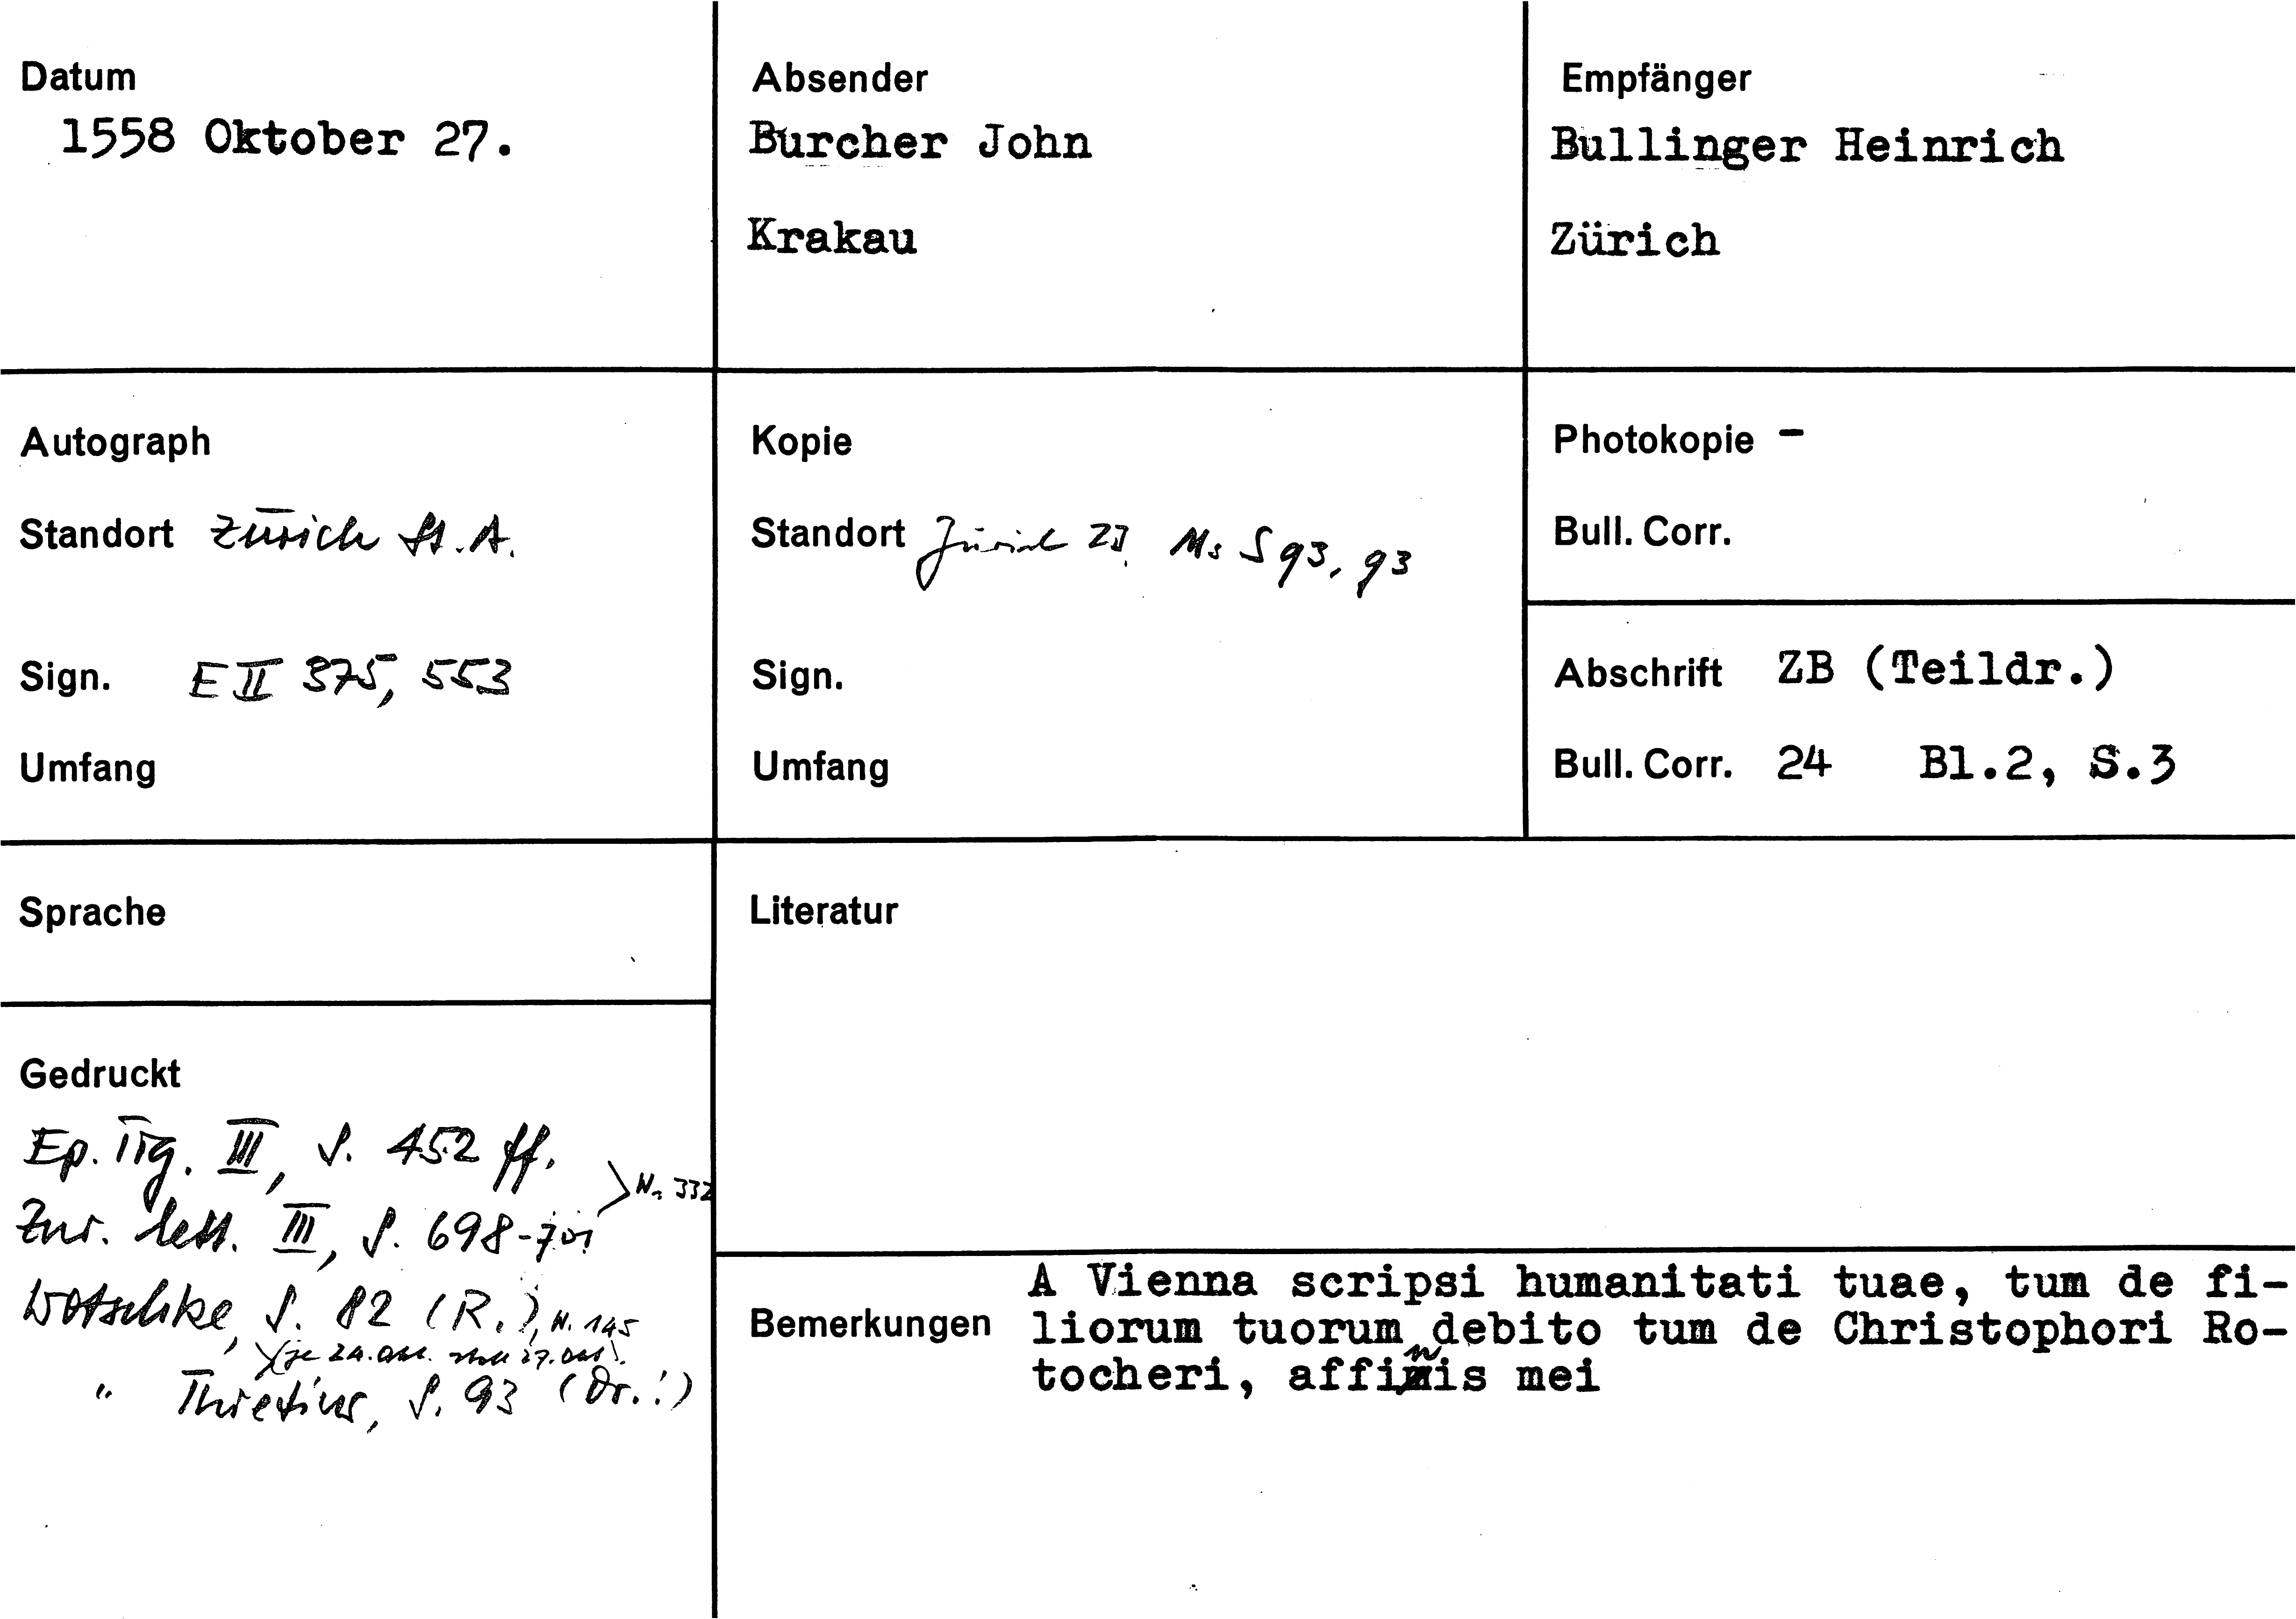 Datum
1558 Oktober 27.
Absender
Burcher John
Krakau
Empfänger
Bullinger Heinrich
Zürich
Autograph
Standort Zürich St. A.
Sign. E II 375, 553
Umfang
Kopie
Standort Zürich ZB, Ms S 93, 93
Sign.
Umfang
Photokopie -
Bull. Corr.
Abschrift ZB (Teildr.)
Bull. Corr. 24 Bl.2, S.3
Sprache
Gedruckt
Ep. Tig. III, S. 452 ff.
Zur. lett. III, S. 698-701
Nr. 332
Wotschke, S. 82 (R.), N. 145
24. Okt. 27. Okt.
" Thretius, S. 93 (Dr.!)
Literatur
Bemerkungen
A Vienna scripsi humanitati tuae, tum de fi-
liorum tuorum debito tum de Christophori Ro-
tocheri, affinis mei